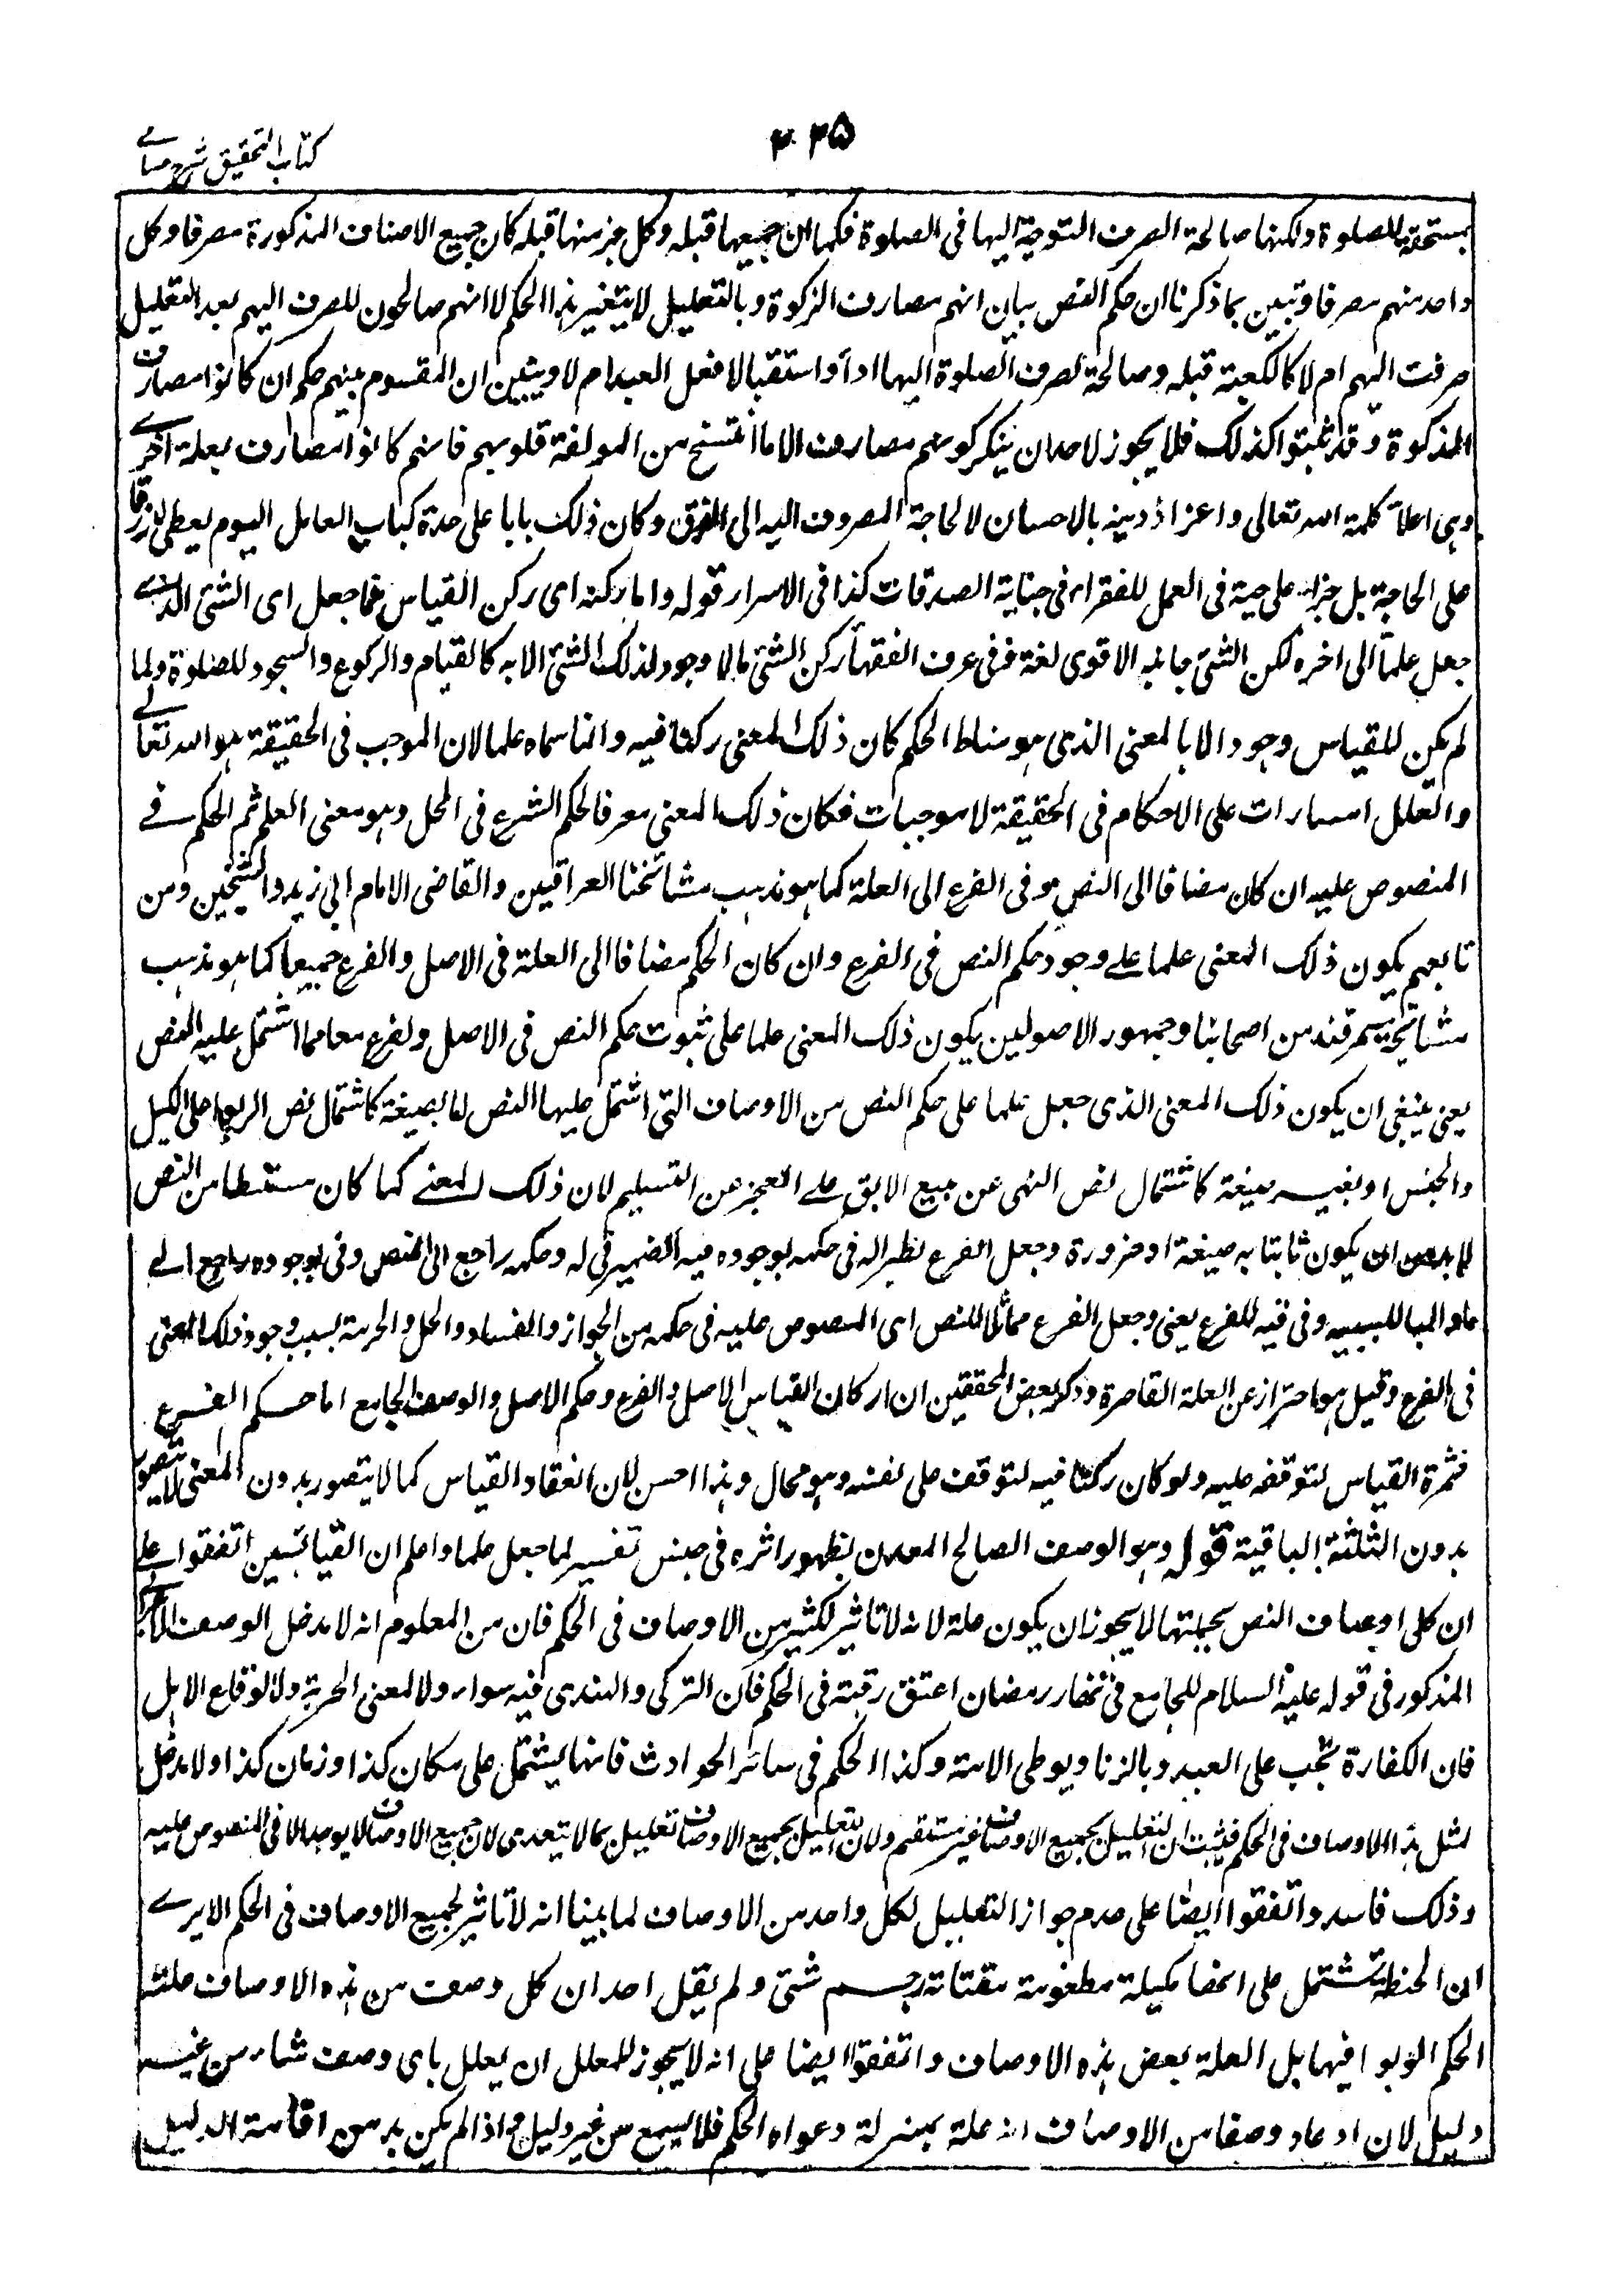 ۳۳۵
كتاب التحقيق شرح حسامے
بمستحقة للصلوة ولكنها صالحة الصرف التوجه اليها فى الصلوة فكما ان جميعها قبلة وكل جزء منها قبلة كان جميع الاصناف المذكورة مصرفا وكل
واحد منهم مصرفا وتبين بما ذكرنا ان حكم النص بيان انهم مصارف الزكوة وبالتعليل لا يتغير هذا الحكم لا انهم صالحون للصرف اليهم بعد التعليل
صرفت اليهم ام لا كالكعبة قبلة وصالحة لصرف الصلوة اليها اداء واستقبالا فعل العبد ام لا ويتبين ان المقسوم بينهم حكم ان كانوا مصارف
المذكوة وقد ثبتوا كذلك فلا يجوز لاحد ان ينكر كونهم مصارف الا ما انتسخ من المولفة قلوبهم فانهم كانوا مصارف بعلة اخرے
وهى اعلاء كلمة الله تعالى واعزاز دينه بالاحسان لا لحاجة المصروف اليه الى الفرق وكان ذلك بابا على حدة كباب العامل اليوم يعطى لا رزقا
على الحاجة بل جزاء على حية فى العمل للفقراء فى جناية الصدقات كذا فى الاسرار قوله واما ركنه اى ركن القياس فما جعل اى الشئ الذے
جعل علما الى اخره ركن الشئ جانبه الاقوى لغة وفى عرف الفقهاء ركن الشئ ما لا وجود لذلك الشئ الا به كالقيام والركوع والسجود للصلوة ولما
لم يكن للقياس وجود الا بالمعنى الذى هو مناط الحكم كان ذلك المعنى ركنا فيه وانما سماه علما لان الموجب فى الحقيقة هو الله تعالے
والعلل امارات على الاحكام فى الحقيقة لا موجبات فكان ذلك المعنى معرفا لحكم الشرع فى المحل وهو معنى العلم ثم الحكم فے
المنصوص عليه ان كان مضافا الى النص وفى الفرع الى العلة كما هو مذهب مشائخنا العراقيين والقاضى الامام ابى زيد والشيخين ومن
تابعهم يكون ذلك المعنى علما علے وجود حكم النص فى الفرع وان كان الحكم مضافا الى العلة فى الاصل والفرع جميعا كما هو مذهب
مشائخ سمرقند من اصحابنا وجمهور الاصوليين يكون ذلك المعنى علما على ثبوت حكم النص فى الاصل والفرع معا مما اشتمل عليه النص
يعنى ينبغى ان يكون ذلك المعنى الذى جعل علما على حكم النص من الاوصاف التى اشتمل عليها النص اما بصيغة كاشتمال نص الربوا على الكيل
والجنس او بغير صيغة كاشتمال نص النهى عن بيع الابق علے العجز عن التسليم لان ذلك المعنے كما كان مستنبطا من النص
لا بد من ان يكون ثابتا به صيغة او ضرورة وجعل الفرع نظيرا له فى حكمه بوجوده فيه الضمير فى له وحكمه راجع الى النص وفى بوجوده راجع الے
ما والبا للسببية وفى فيه للفرع يعنى وجعل الفرع مماثلا للنص اى المنصوص عليه فى حكمه من الجواز والفساد والحل والحرمة بسبب وجود ذلك المعنى
فى الفرع وقيل هو احتراز عن العلة القاصرة وذكر بعض المحققين ان اركان القياس الاصل والفرع وحكم الاصل والوصف الجامع اما حكم الفرع
فثمرة القياس لتوقفه عليه ولو كان ركنا فيه لتوقف على نفسه وهو محال وهذا احسن لان انعقاد القياس كما لا يتصور بدون المعنى لا يتصور
بدون الثلثة الباقية قوله وهو الوصف الصالح المعدل بظهور اثره فى جنس تفسير لما جعل علما واعلم ان القيائسين اتفقوا علے
ان كل اوصاف النص بجملتها لا يجوز ان يكون علة لانه لا تاثير لكثير من الاوصاف فى الحكم فان من المعلوم انه لا مدخل الوصف
المذكور فى قوله عليه السلام للجامع فى نهار رمضان اعتق رقبة فى الحكم فان التركى والهندى فيه سواء ولا لمعنى الحرية ولا لوقاع الاهل
فان الكفارة تجب على العبد وبالزنا وبوطى الامة وكذا الحكم فى سائر الحوادث فانها يشتمل على مكان كذا وزمان كذا ولا مدخل
لمثل هذا الاوصاف فى الحكم فيثبت ان التعليل بجميع الاوصاف غير مستقيم ولان التعليل بجميع الاوصاف تعليل بما لا يتعدى لان جميع الاوصاف لا يوجد الا فى المنصوص عليه
وذلك فاسد واتفقوا ايضا على عدم جواز التعليل لكل واحد من الاوصاف لما بينا انه لا تاثير لجميع الاوصاف فى الحكم الا يرے
ان الحنطة تشتمل على انها مكيلة مطعومة مقتاتة جسم شئ ولم يقل احد ان كل وصف من هذه الاوصاف علة
الحكم الربوا فيها بل العلة بعض هذه الاوصاف واتفقوا ايضا على انه لا يجوز للمعلل ان يعلل باى وصف شاء من غير
دليل لان ادعاء وصفا من الاوصاف انه علة بمنزلة دعواه الحكم فلا يسمع من غير دليل واذا لم يكن بد من اقامة الدليل